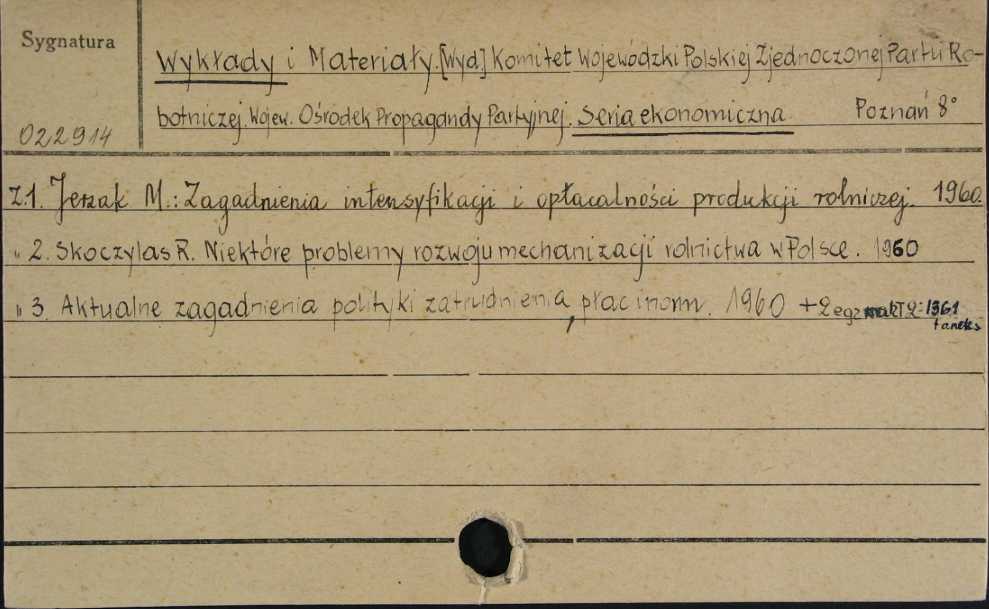 Sygnatura
Wykłady i Materiały. [Wyd] Komitet Wojewódzki Polskiej Zjednoczonej Partii Ro-
botniczej. Wojew. Ośrodek Propagandy Partyjnej. Seria ekonomiczna. Poznań 8°
022914
Z.1. Jerzak M.: Zagadnienia intensyfikacji i opłacalności produkcji rolniczej. 1960.
" 2. Skoczylas R. Niektóre problemy rozwoju mechanizacji rolnictwa w Polsce. 1960
" 3. Aktualne zagadnienia polityki zatrudnienia, płac i norm. 1960 + 2 egz